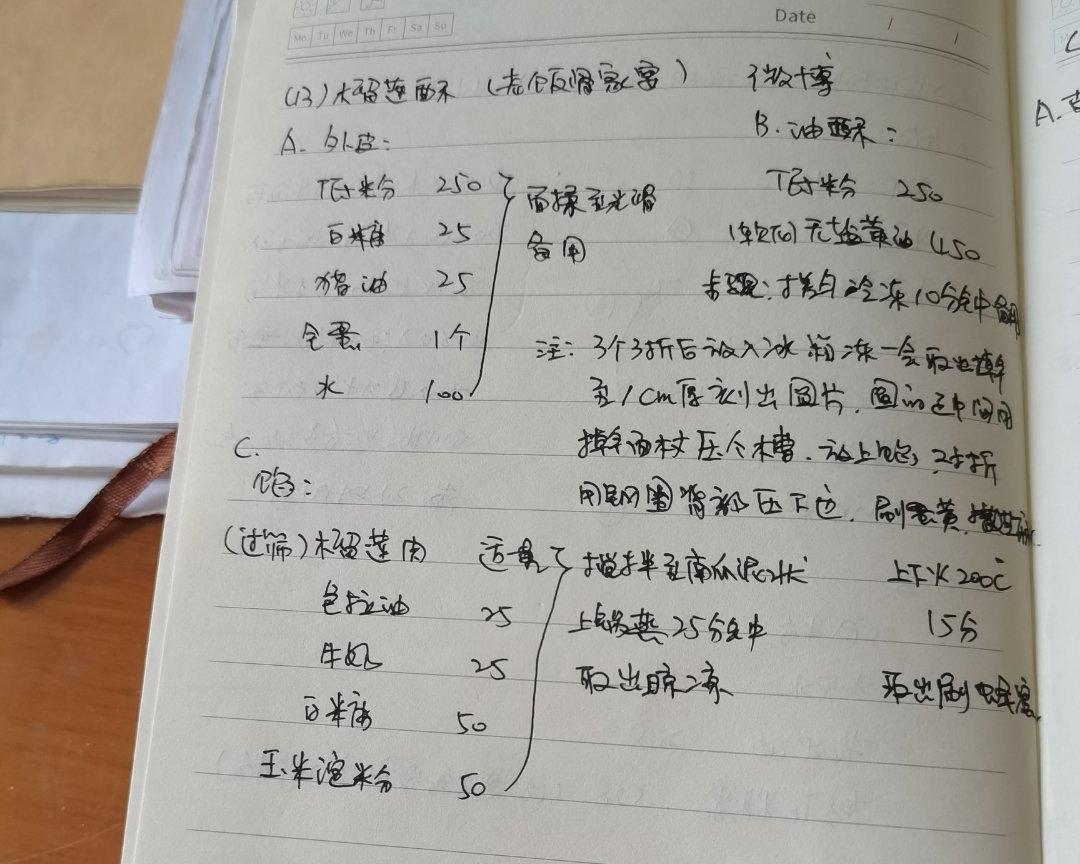 Date
Mo Tu We Th Fr Sa Su
(13) 榴莲酥 (老饭骨家宴) 微博
A. 外皮:
B. 油酥:
面粉 250
白糖 25
猪油 25
全蛋 1个
水 100
面揉至光滑
备用
面粉 250
(软化) 无盐黄油 450
步骤: 搓匀冷冻10分钟备用
注: 3个3折后放入冰箱冻一会取出擀
至1cm厚刻出圆片, 圆的正中间用
擀面杖压个槽, 放上馅, 对折
用圈背部压下边, 刷蛋黄, 撒芝麻.
C.
馅:
(过筛) 榴莲肉 适量
色拉油 25
牛奶 25
白糖 50
玉米淀粉 50
搅拌至南瓜泥状
上锅蒸25分钟
取出晾凉
上下火200℃
15分
取出刷蜂蜜.
A.